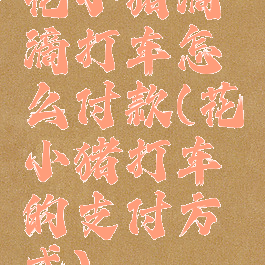 花小猪滴
滴打车怎
么付款(花
小猪打车
的支付方
式)